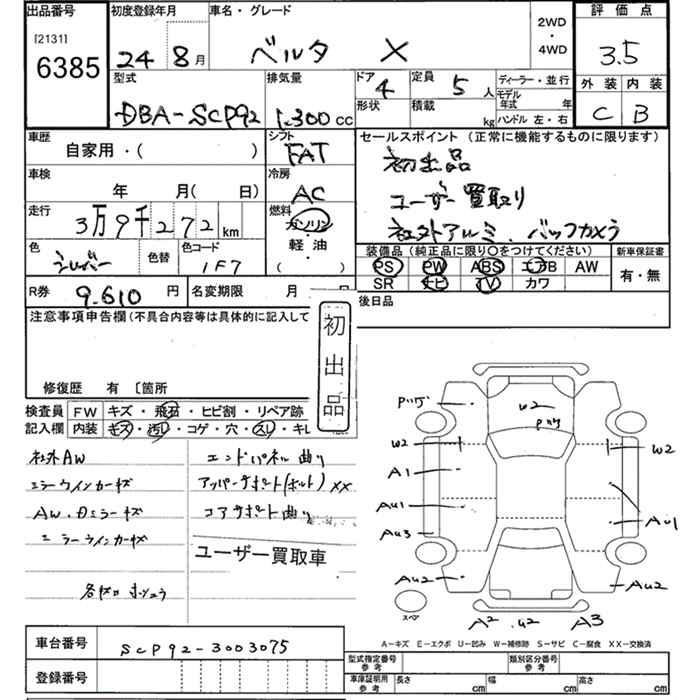 出品番号 初度登録年月 車名・グレード 2WD・4WD 評価点
[2131]
6385 24年 8月 ベルタ X 3.5
型式 排気量 ドア 定員 ディーラー・並行 外装 内装
DBA-SCP92 1,300cc 4 5人 モデル年式 年 C B
形状 積載 kg ハンドル 左・右
車歴 シフト セールスポイント (正常に機能するものに限ります)
自家用・( ) FAT 初出品
車検 冷房
年 月( 日) AC ユーザー買取り
走行 燃料
3万9千272km ガソリン 社外アルミ、バックカメラ
色 色替 色コード 軽油 装備品(純正品に限り○をつけてください) 新車保証書
シルバー 1F7 ・( ) PS PW ABS エアB AW 有・無
SR ナビ TV カワ
R券 9,610円 名変期限 月 日 後日品
注意事項申告欄(不具合内容等は具体的に記入して
初出品
修復歴 有 〔箇所
検査員 FW キズ・飛石・ヒビ割・リペア跡
記入欄 内装 キズ・汚レ・コゲ・穴・スレ・キレ
社外AW エンドパネル曲り
ミラーウインカーキズ アッパーサポート(ボルト)XX
AW、Dミラーキズ コアサポート曲り
ミラーウインカーキズ
ユーザー買取車
W2
W2 W2
A1
AU1
AU3 AU1
AU2 AU2
スペア
A2 U2 A3
A－キズ E－エクボ U－凹み W－補修跡 S－サビ C－腐食 XX－交換済
車台番号 SCP92-3003075
登録番号
型式指定番号 参考 類別区分番号 参考
車庫証明用 参考 長さ cm 幅 cm 高さ cm